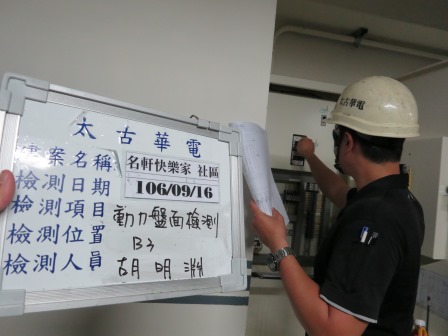 太古華電
建案名稱 名軒快樂家 社區
檢測日期 106/09/16
檢測項目 動力盤面檢測
檢測位置 B3
檢測人員 胡明洲
太古華電